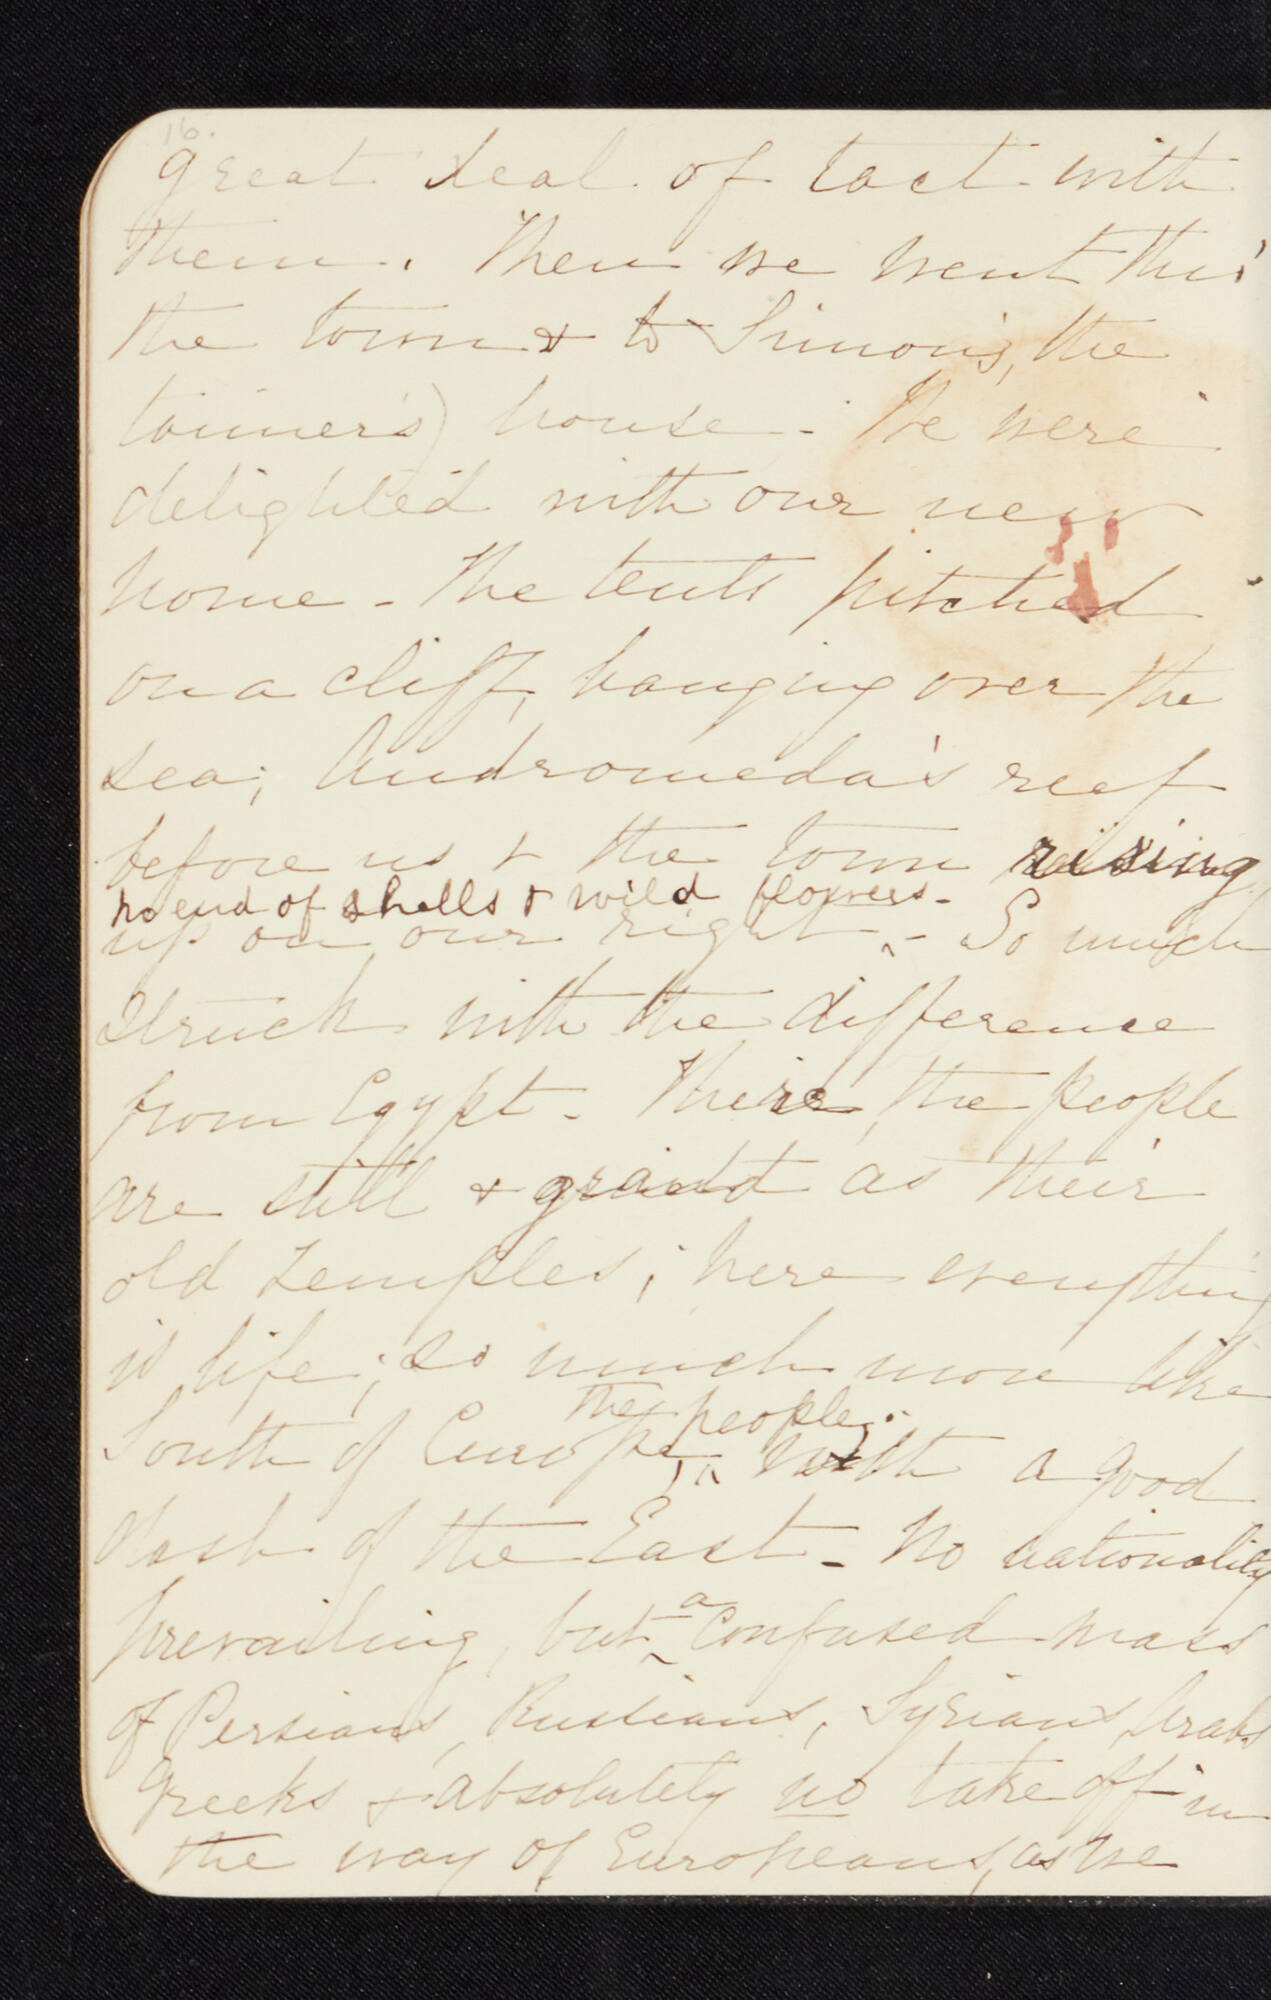 16.
great deal of tact with
them. Then we went thro'
the town & to Simon's, the
tanner's) house - We were
delighted with our new
home - The tents pitched
on a cliff, hanging over the
sea; Andromeda's reef
before us & the town rising
no end of shells & wild flowers -
up on our right ^ - So much
struck with the difference
from Egypt - There, the people
are still & grand as their
old Temples; here everything
is life; so much more like
the people;
South of Europe, ^ with a good
dash of the East - No nationality
prevailing, but ^a confused mass
of Persians, Russians, Syrians, Arabs
Greeks & absolutely no take off in
the way of Europeans, as we